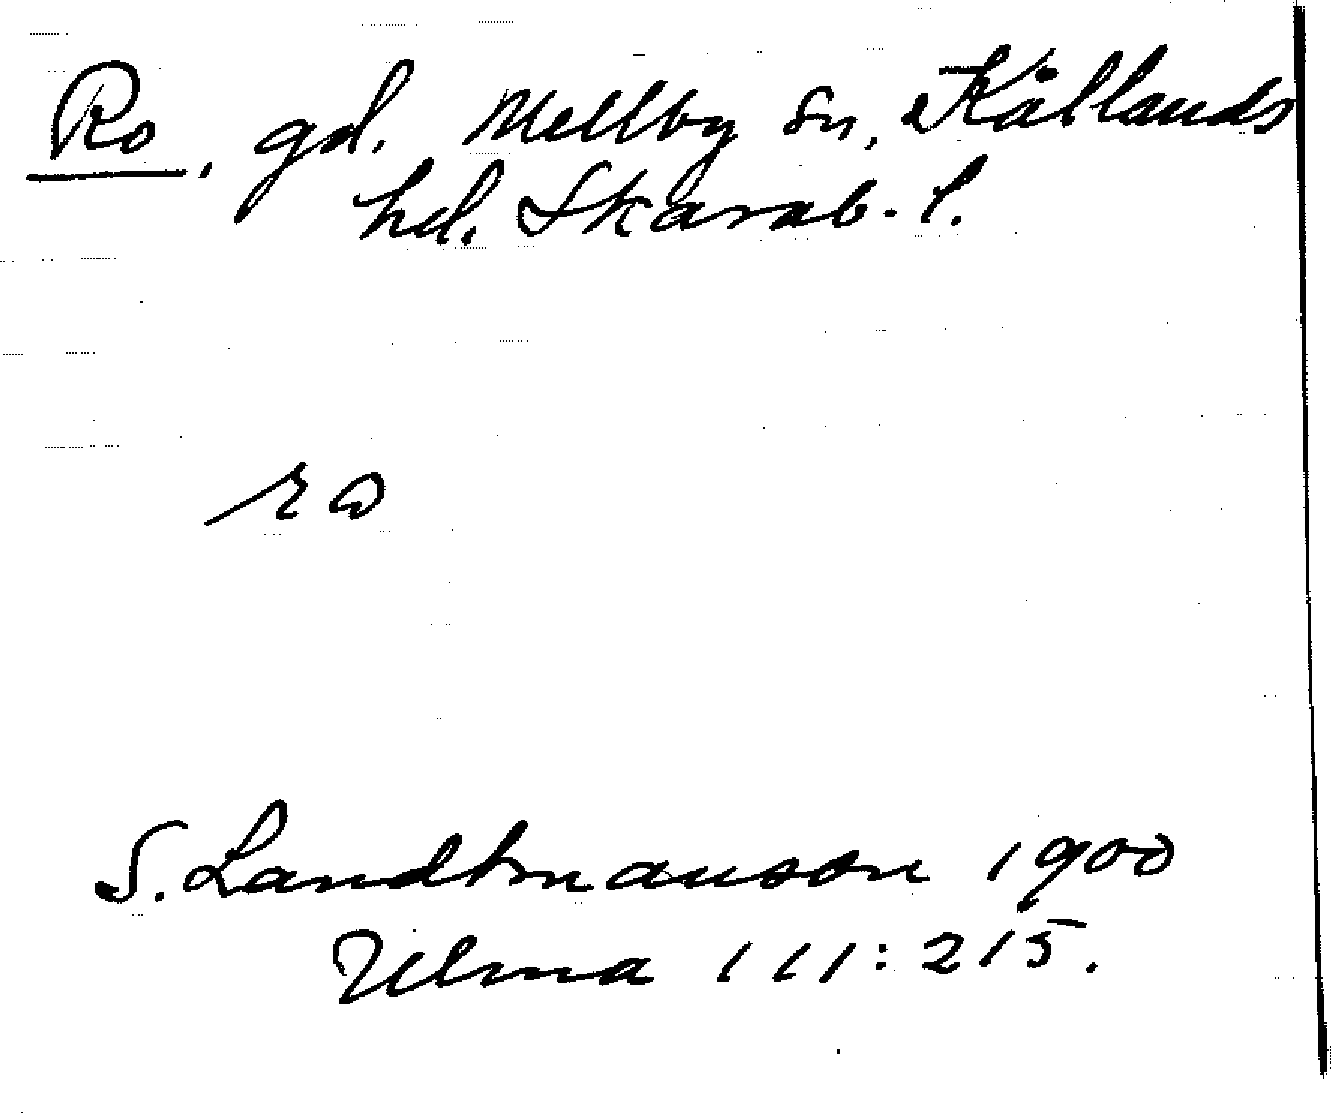 Ro, gd. Mellby sn, Kållands
hd. Skarab. l.
S. Landtmanson 1900
Ulma 111:215.